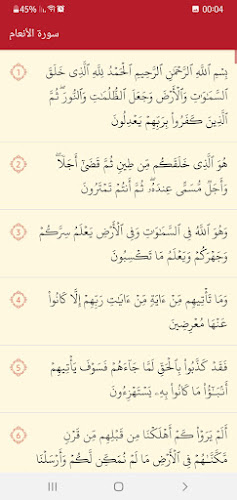 45% 00:04
سورة الأنعام
بِسْمِ ٱللَّهِ ٱلرَّحْمَٰنِ ٱلرَّحِيمِ ٱلْحَمْدُ لِلَّهِ ٱلَّذِى خَلَقَ
ٱلسَّمَٰوَٰتِ وَٱلْأَرْضَ وَجَعَلَ ٱلظُّلُمَٰتِ وَٱلنُّورَ ۖ ثُمَّ
ٱلَّذِينَ كَفَرُوا۟ بِرَبِّهِمْ يَعْدِلُونَ
1
هُوَ ٱلَّذِى خَلَقَكُم مِّن طِينٍ ثُمَّ قَضَىٰٓ أَجَلًا ۖ
وَأَجَلٌ مُّسَمًّى عِندَهُۥ ۖ ثُمَّ أَنتُمْ تَمْتَرُونَ
2
وَهُوَ ٱللَّهُ فِى ٱلسَّمَٰوَٰتِ وَفِى ٱلْأَرْضِ ۖ يَعْلَمُ سِرَّكُمْ
وَجَهْرَكُمْ وَيَعْلَمُ مَا تَكْسِبُونَ
3
وَمَا تَأْتِيهِم مِّنْ ءَايَةٍ مِّنْ ءَايَٰتِ رَبِّهِمْ إِلَّا كَانُوا۟
عَنْهَا مُعْرِضِينَ
4
فَقَدْ كَذَّبُوا۟ بِٱلْحَقِّ لَمَّا جَآءَهُمْ ۖ فَسَوْفَ يَأْتِيهِمْ
أَنۢبَٰٓؤُا۟ مَا كَانُوا۟ بِهِۦ يَسْتَهْزِءُونَ
5
أَلَمْ يَرَوْا۟ كَمْ أَهْلَكْنَا مِن قَبْلِهِم مِّن قَرْنٍ
مَّكَّنَّٰهُمْ فِى ٱلْأَرْضِ مَا لَمْ نُمَكِّن لَّكُمْ وَأَرْسَلْنَا
6